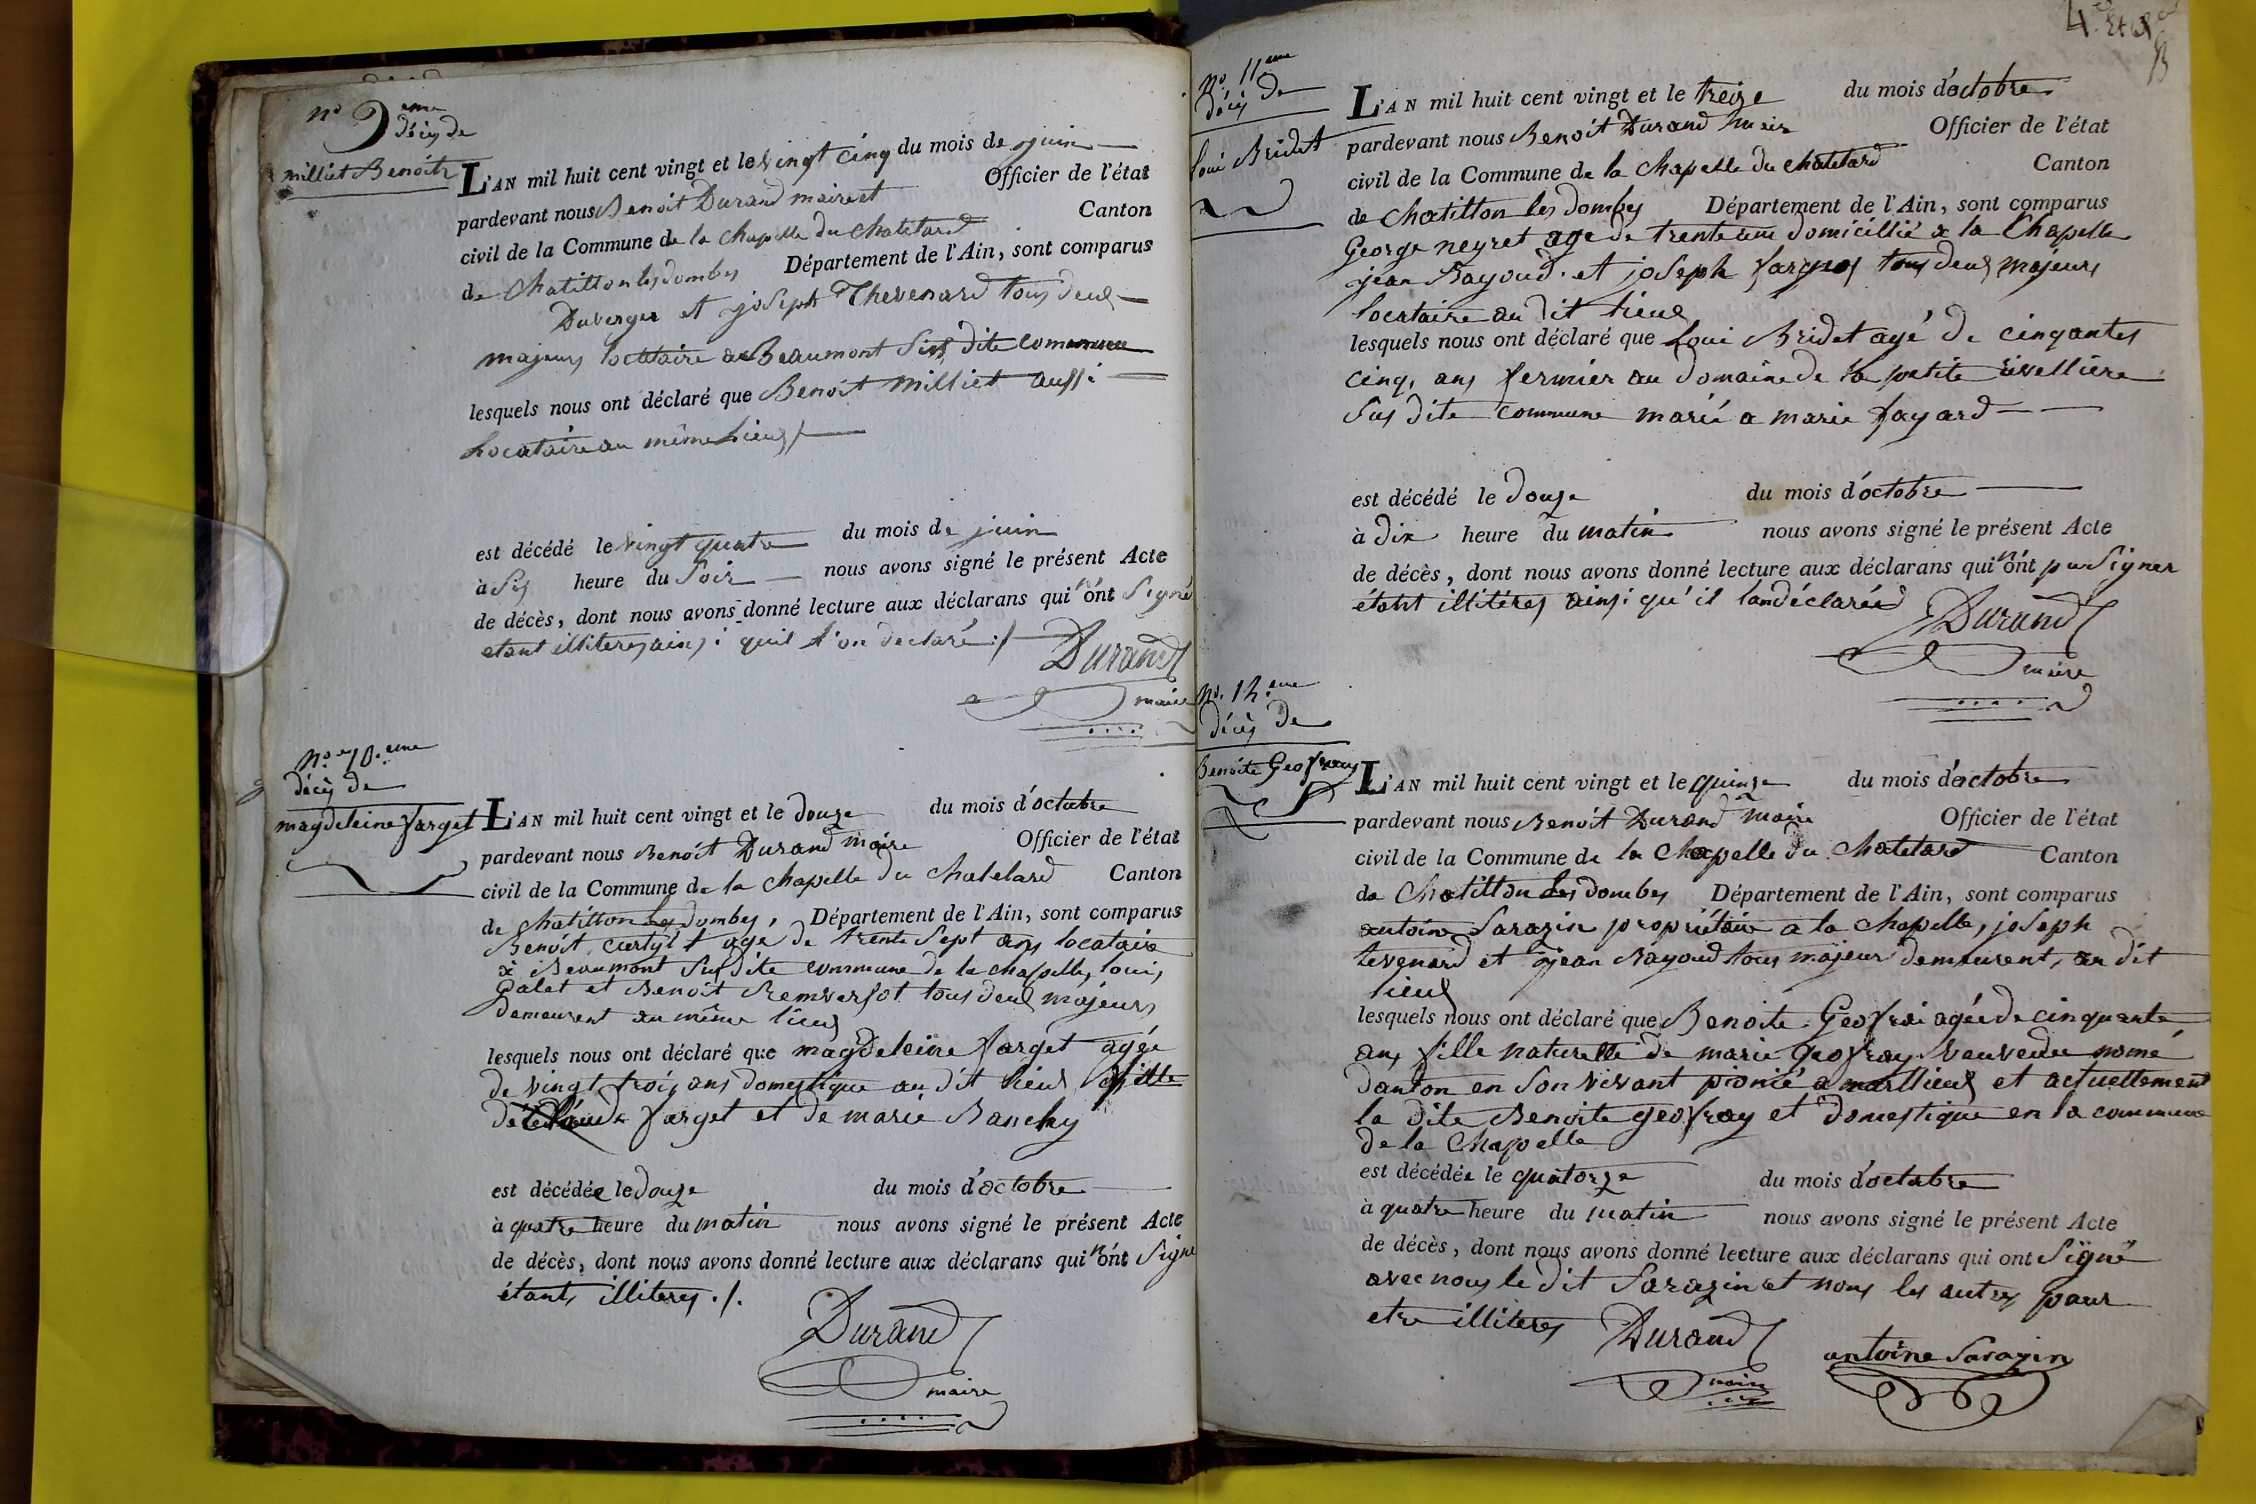 no 9eme
décès de
milliet Benoit
L'AN mil huit cent vingt et le vingt cinq du mois de juin
pardevant nous Benoit Durand maire et Officier de l'état
civil de la Commune de la Chapelle du Chatelard Canton
de Chatillon les dombes Département de l'Ain, sont comparus
Duverger et joseph Thevenard tous deux
majeurs locataire a Beaumont Sus dite commune
lesquels nous ont déclaré que Benoit Milliet aussi
Locataire au même Lieux
est décédé le vingt quatre du mois de juin
à Six heure du Soir nous avons signé le présent Acte
de décès, dont nous avons donné lecture aux déclarans qui n'ont Signé
etant illiteres ainsi quil l'on declaré ./.
Durand
maire
No. 10.eme
décès de
magdeleine farget
L'AN mil huit cent vingt et le douze du mois d'octobre
pardevant nous Benoit Durand maire Officier de l'état
civil de la Commune de la Chapelle du Chatelard Canton
de Chatillon les dombes, Département de l'Ain, sont comparus
Benoit agé de trente Sept ans locataire
à Beaumont Sus dite commune de la chapelle, louis
Galet et Benoit tous deux majeurs
demeurent au même lieux
lesquels nous ont déclaré que magdeleine farget agée
de vingt trois ans domestique au dit lieux fille
de farget et de marie Banchy
est décédée le douze du mois d'octobre
à quatre heure du matin nous avons signé le présent Acte
de décès, dont nous avons donné lecture aux déclarans qui n'ont Signé
étants illiteres ./.
Durand
maire
No. 11eme
décès de
Loui Bridet
L'AN mil huit cent vingt et le treize du mois d'octobre
pardevant nous Benoit Durand maire Officier de l'état
civil de la Commune de la Chapelle du Chatelard Canton
de Chatillon les dombes Département de l'Ain, sont comparus
George neyret age de trente un domicillié a la Chapelle
jean Bayoud et joseph tous deux majeurs
locataire au dit lieux
lesquels nous ont déclaré que Loui Bridet agé de cinqantes
cinq, ans fermier au domaine de la petite rivellière
Sus dite commune marié a marie fayard
est décédé le douze du mois d'octobre
à dix heure du matin nous avons signé le présent Acte
de décès, dont nous avons donné lecture aux déclarans qui n'ont pu Signer
étant illitéres ainsi qu'il l'ondéclaréed
Durand
maire
No. 12.eme
décès de
Benoite Geofray
L'AN mil huit cent vingt et le quinze du mois d'octobre
pardevant nous Benoit Durand maire Officier de l'état
civil de la Commune de la Chapelle du Chatelard Canton
de Chatillon les dombes Département de l'Ain, sont comparus
antoine Sarazin propriétaire a la Chapelle, joseph
tevenard et jean Bayoud tous majeur demeurent, au dit
lieux
lesquels nous ont déclaré que Benoite Geofrai agée de cinquante
ans, fille naturelle de marie Geofray veuve du nomé
danton en Son vivant pionié a marllieux et actuellement
la dite Benoite geofray et domestique en la commune
de la Chapelle
est décédée le quatorze du mois d'octobre
à quatre heure du matin nous avons signé le présent Acte
de décès, dont nous avons donné lecture aux déclarans qui ont Signé
avec nous le dit Sarazin et nons les autres pour
etre illiteres
Durand
maire
antoine Sarazin